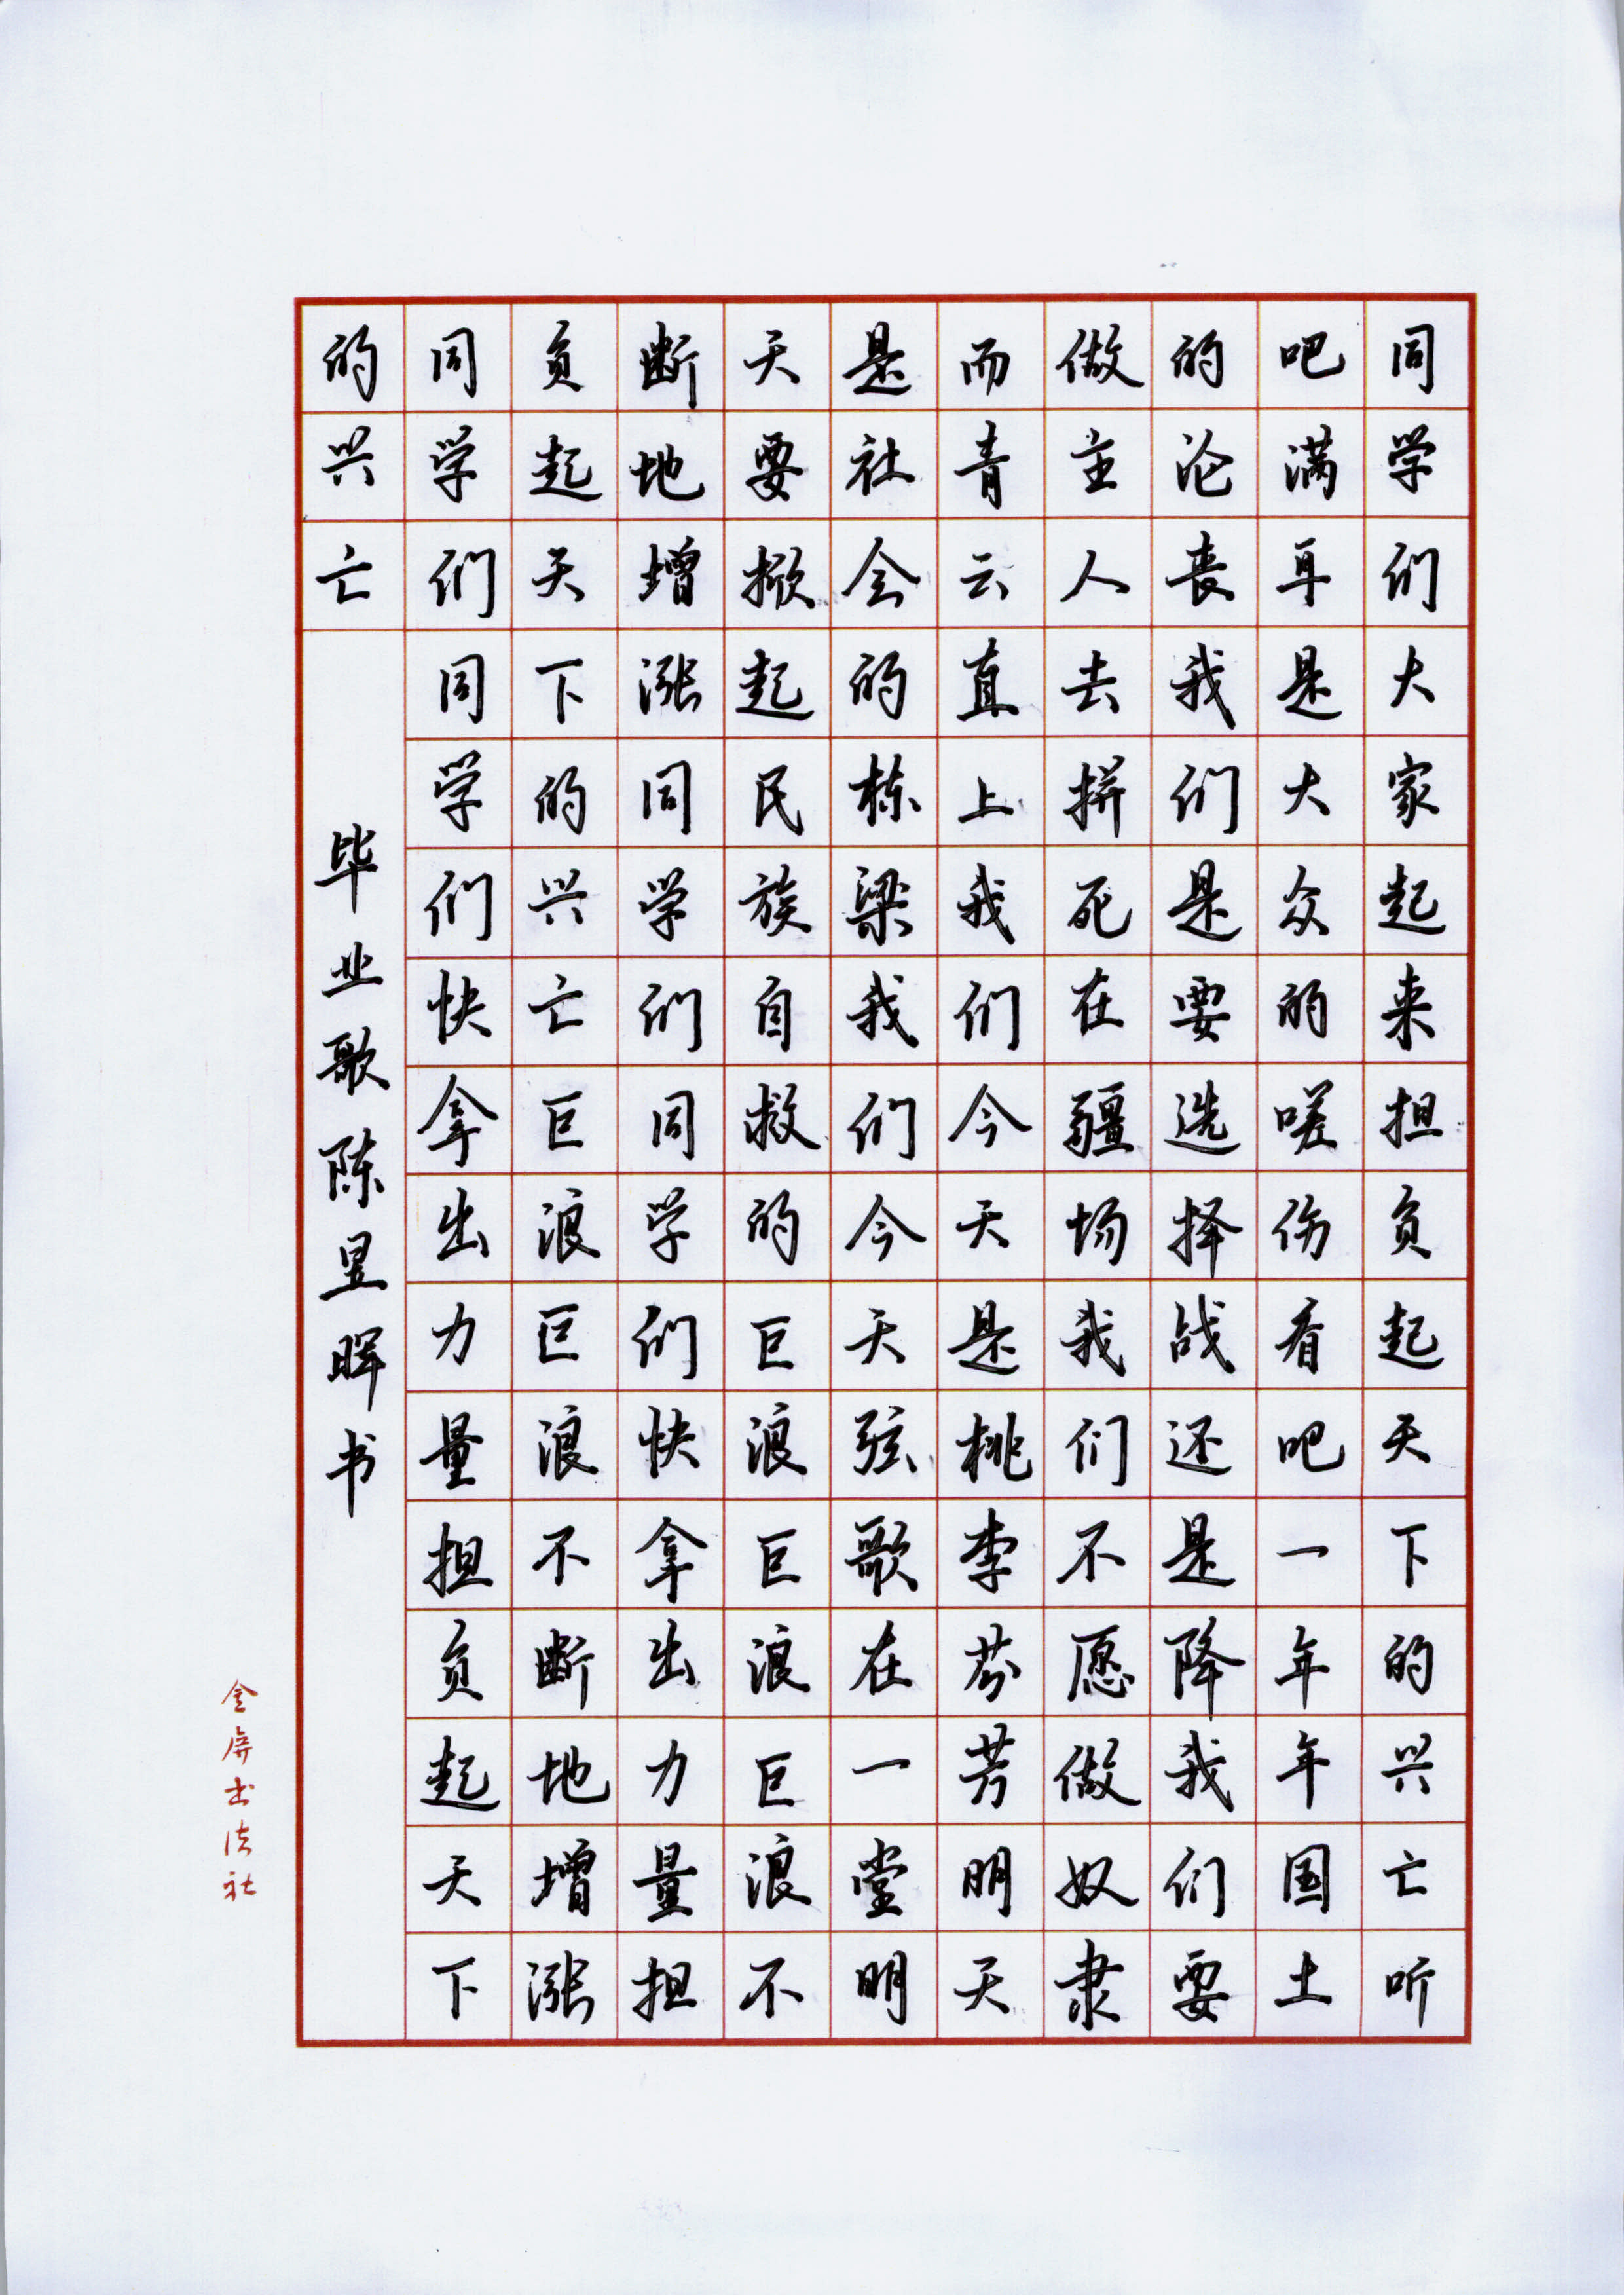 同学们大家起来担负起天下的兴亡听
吧满耳是大众的嗟伤看吧一年年国土
的沦丧我们是要选择战还是降我们要
做主人去拼死在疆场我们不愿做奴隶
而青云直上我们今天是桃李芬芳明天
是社会的栋梁我们今天弦歌在一堂明
天要掀起民族自救的巨浪巨浪巨浪不
断地增涨同学们同学们快拿出力量担
负起天下的兴亡巨浪巨浪不断地增涨
同学们同学们快拿出力量担负起天下
的兴亡
毕业歌陈昱晖书
金屏书法社